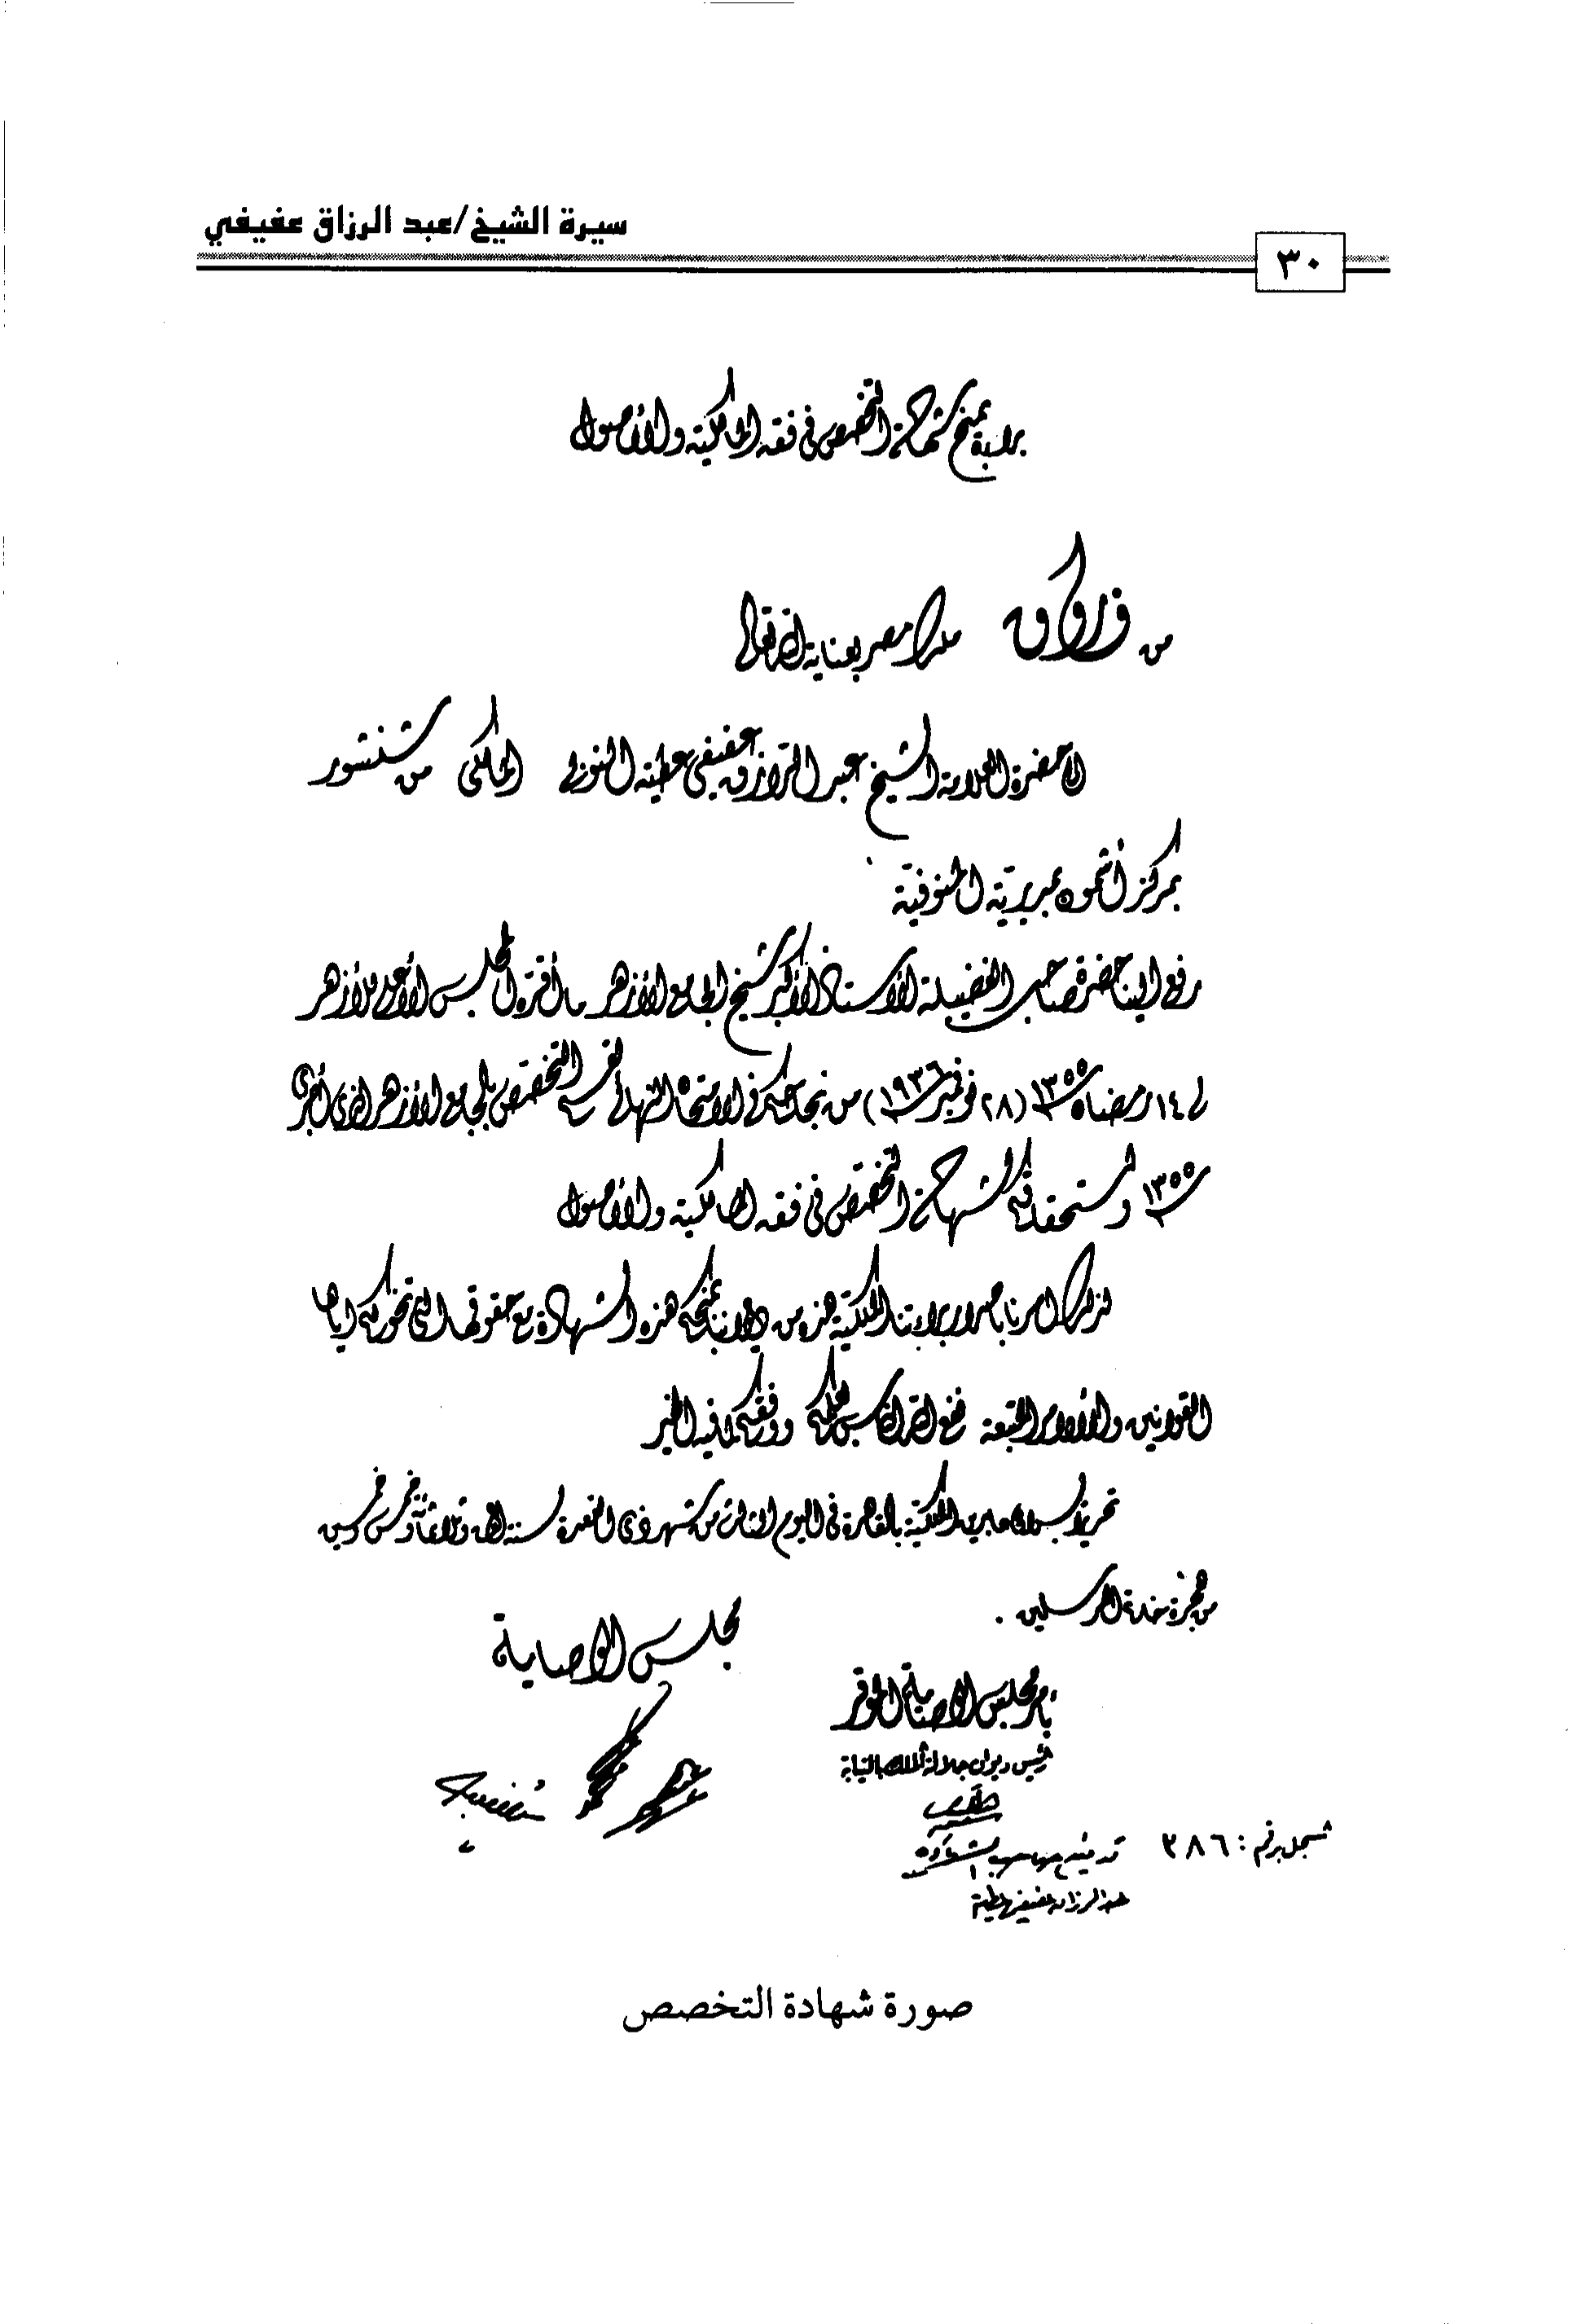 سيرة الشيخ/عبد الرزاق عفيفي
٣٠
براءة بمنح شهادة التخصص فى فقه المالكية والأصول
من فاروق ملك مصر بعناية الله تعالى
إلى حضرة العلامة الشيخ عبد الرازق عفيفى عطية النوبى المالكى من شنشور
بمركز أشمون بمديرية المنوفية
رفع إلينا حضرة صاحب الفضيلة الأستاذ الأكبر شيخ الجامع الأزهر ما أقره المجلس الأعلى للأزهر
فى ١٤ رمضان ١٣٥٥ (٢٨ نوفمبر ١٩٣٦) من نجاحكم فى الامتحان النهائى لقسم التخصص بالجامع الأزهر الذى أجرى
١٣٥٥ واستحقاقكم لشهادة التخصص فى فقه المالكية والأصول
لذلك أمرنا بإصدار براءتنا الملكية هذه من ديواننا بمنحكم هذه الشهادة مع حقوقها التى تخولكم إياها
القوانين والأوامر المتبعة نفع الله الناس بعلمكم ووفقكم لما فيه الخير
تحريراً بسراى عابدين الملكية بالقاهرة فى اليوم الثالث من شهر ذى القعدة لسنة ألف وثلاثمائة وخمس وخمسين
من هجرة خاتم المرسلين .
مجلس الوصاية
بأمر مجلس الوصاية الموقر
رئيس ديوان جلالة الملك بالنيابة
سجل برقم : ٣٨٦
الشهادة
عبد الرزاق عفيفى عطية
صورة شهادة التخصص